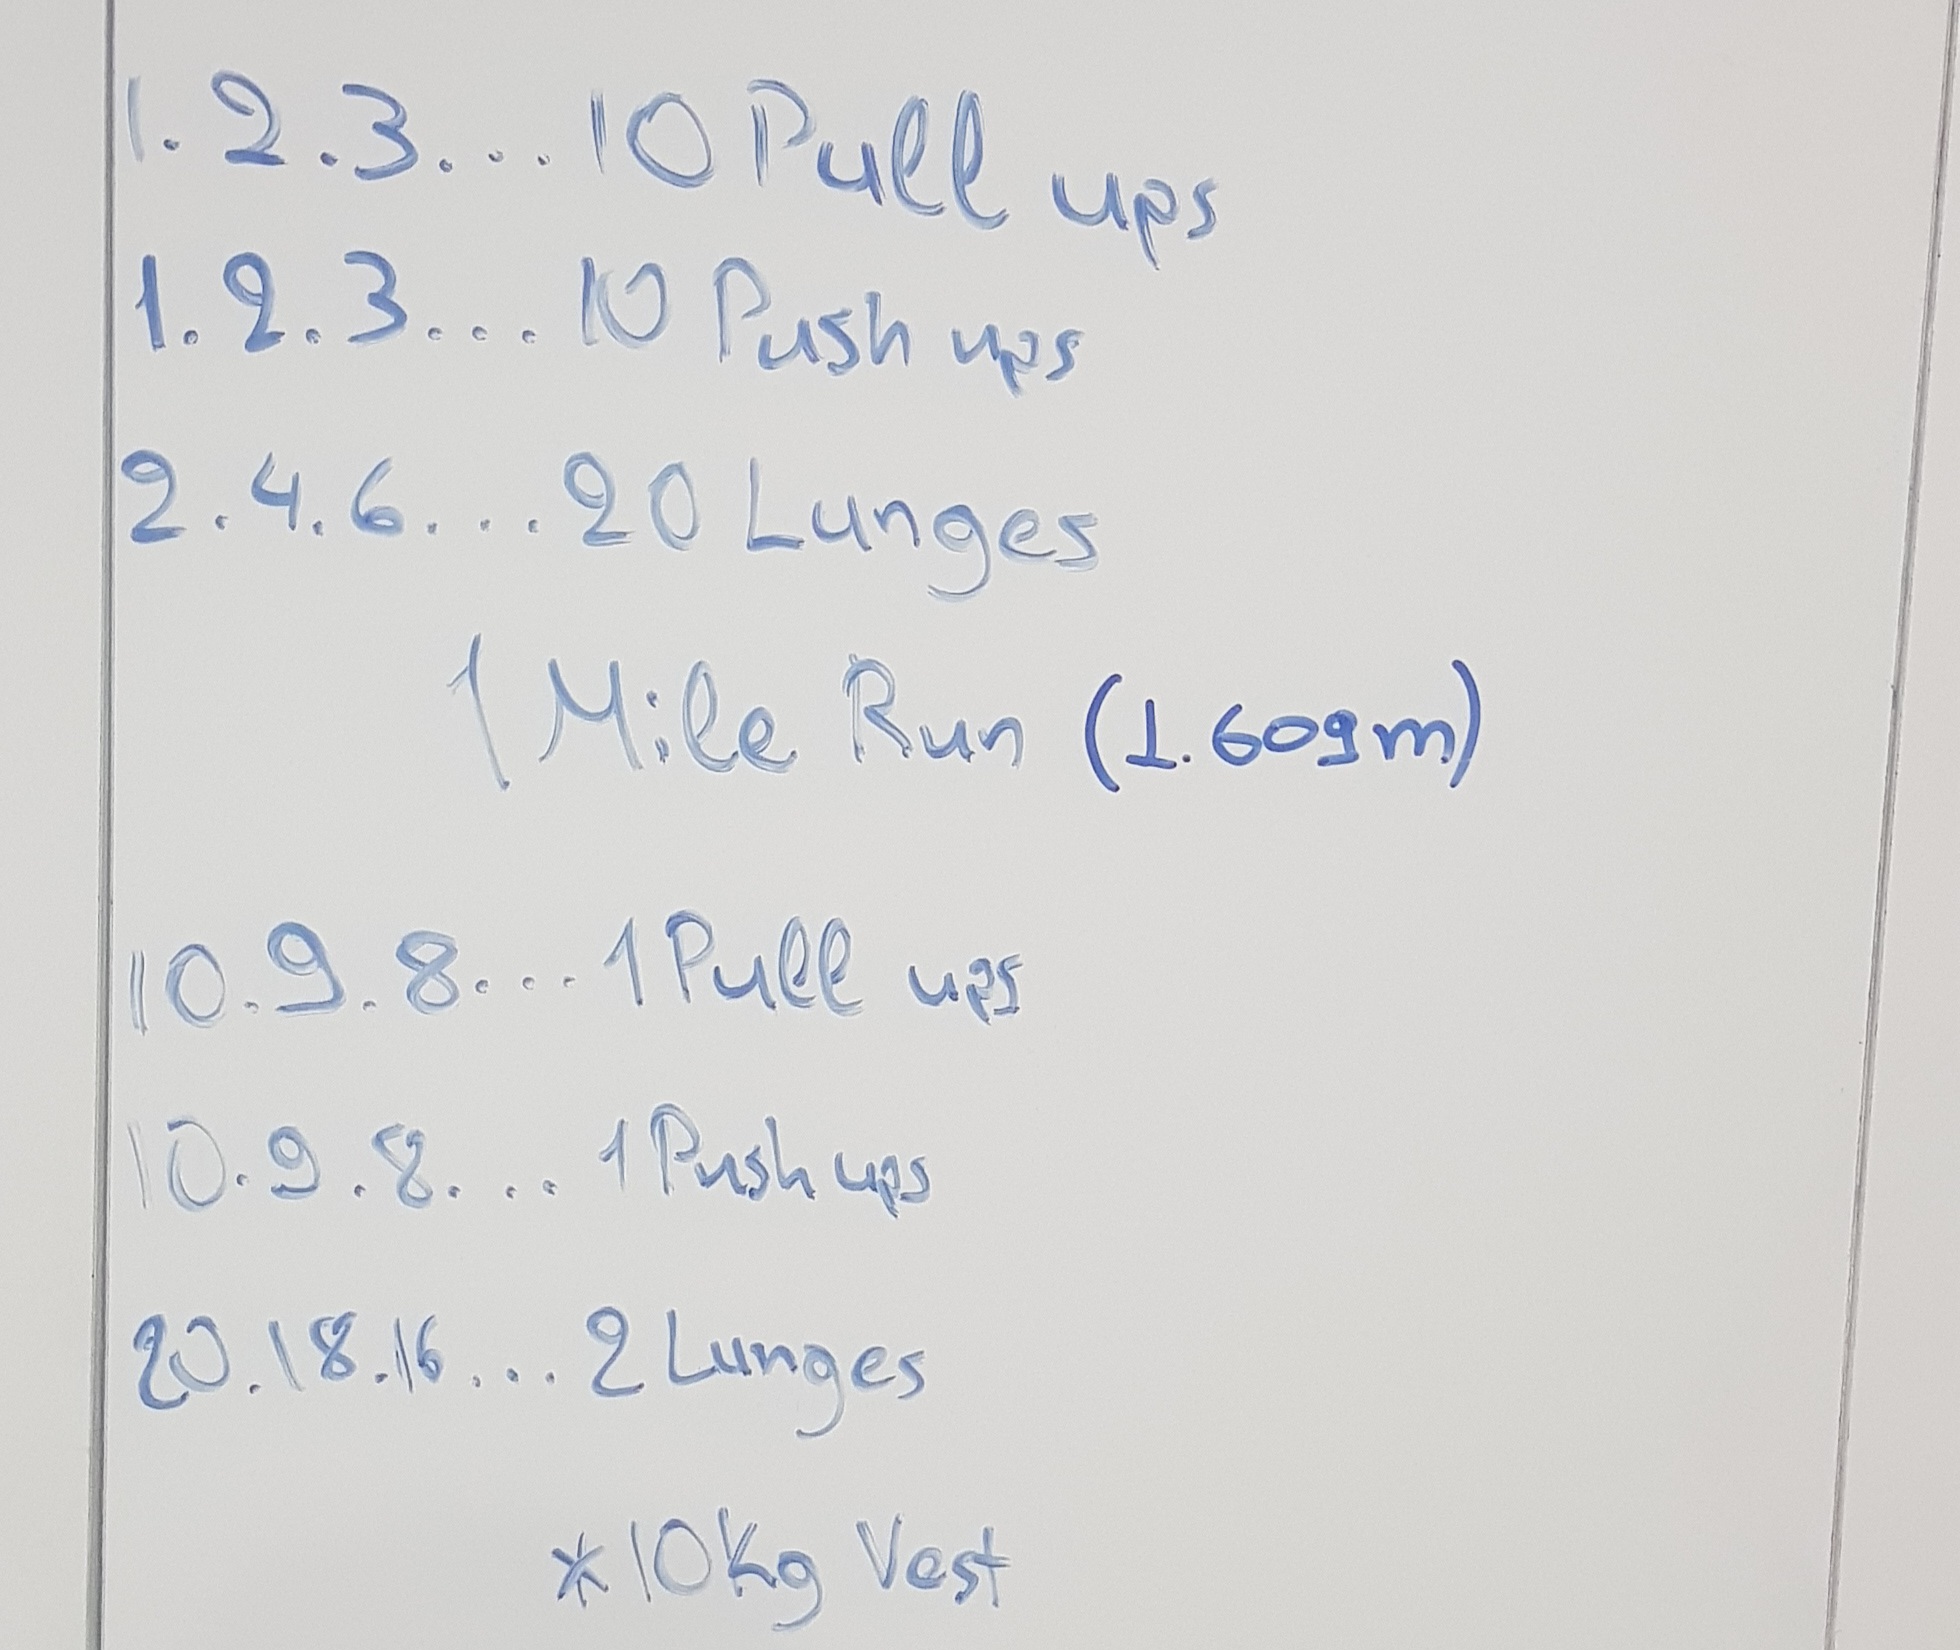 1.2.3....10 Pull ups
1.2.3....10 Push ups
2.4.6....20 Lunges
1 Mile Run (1.609m)
10.9.8....1 Pull ups
10.9.8....1 Push ups
20.18.16....2 Lunges
*10Kg Vest